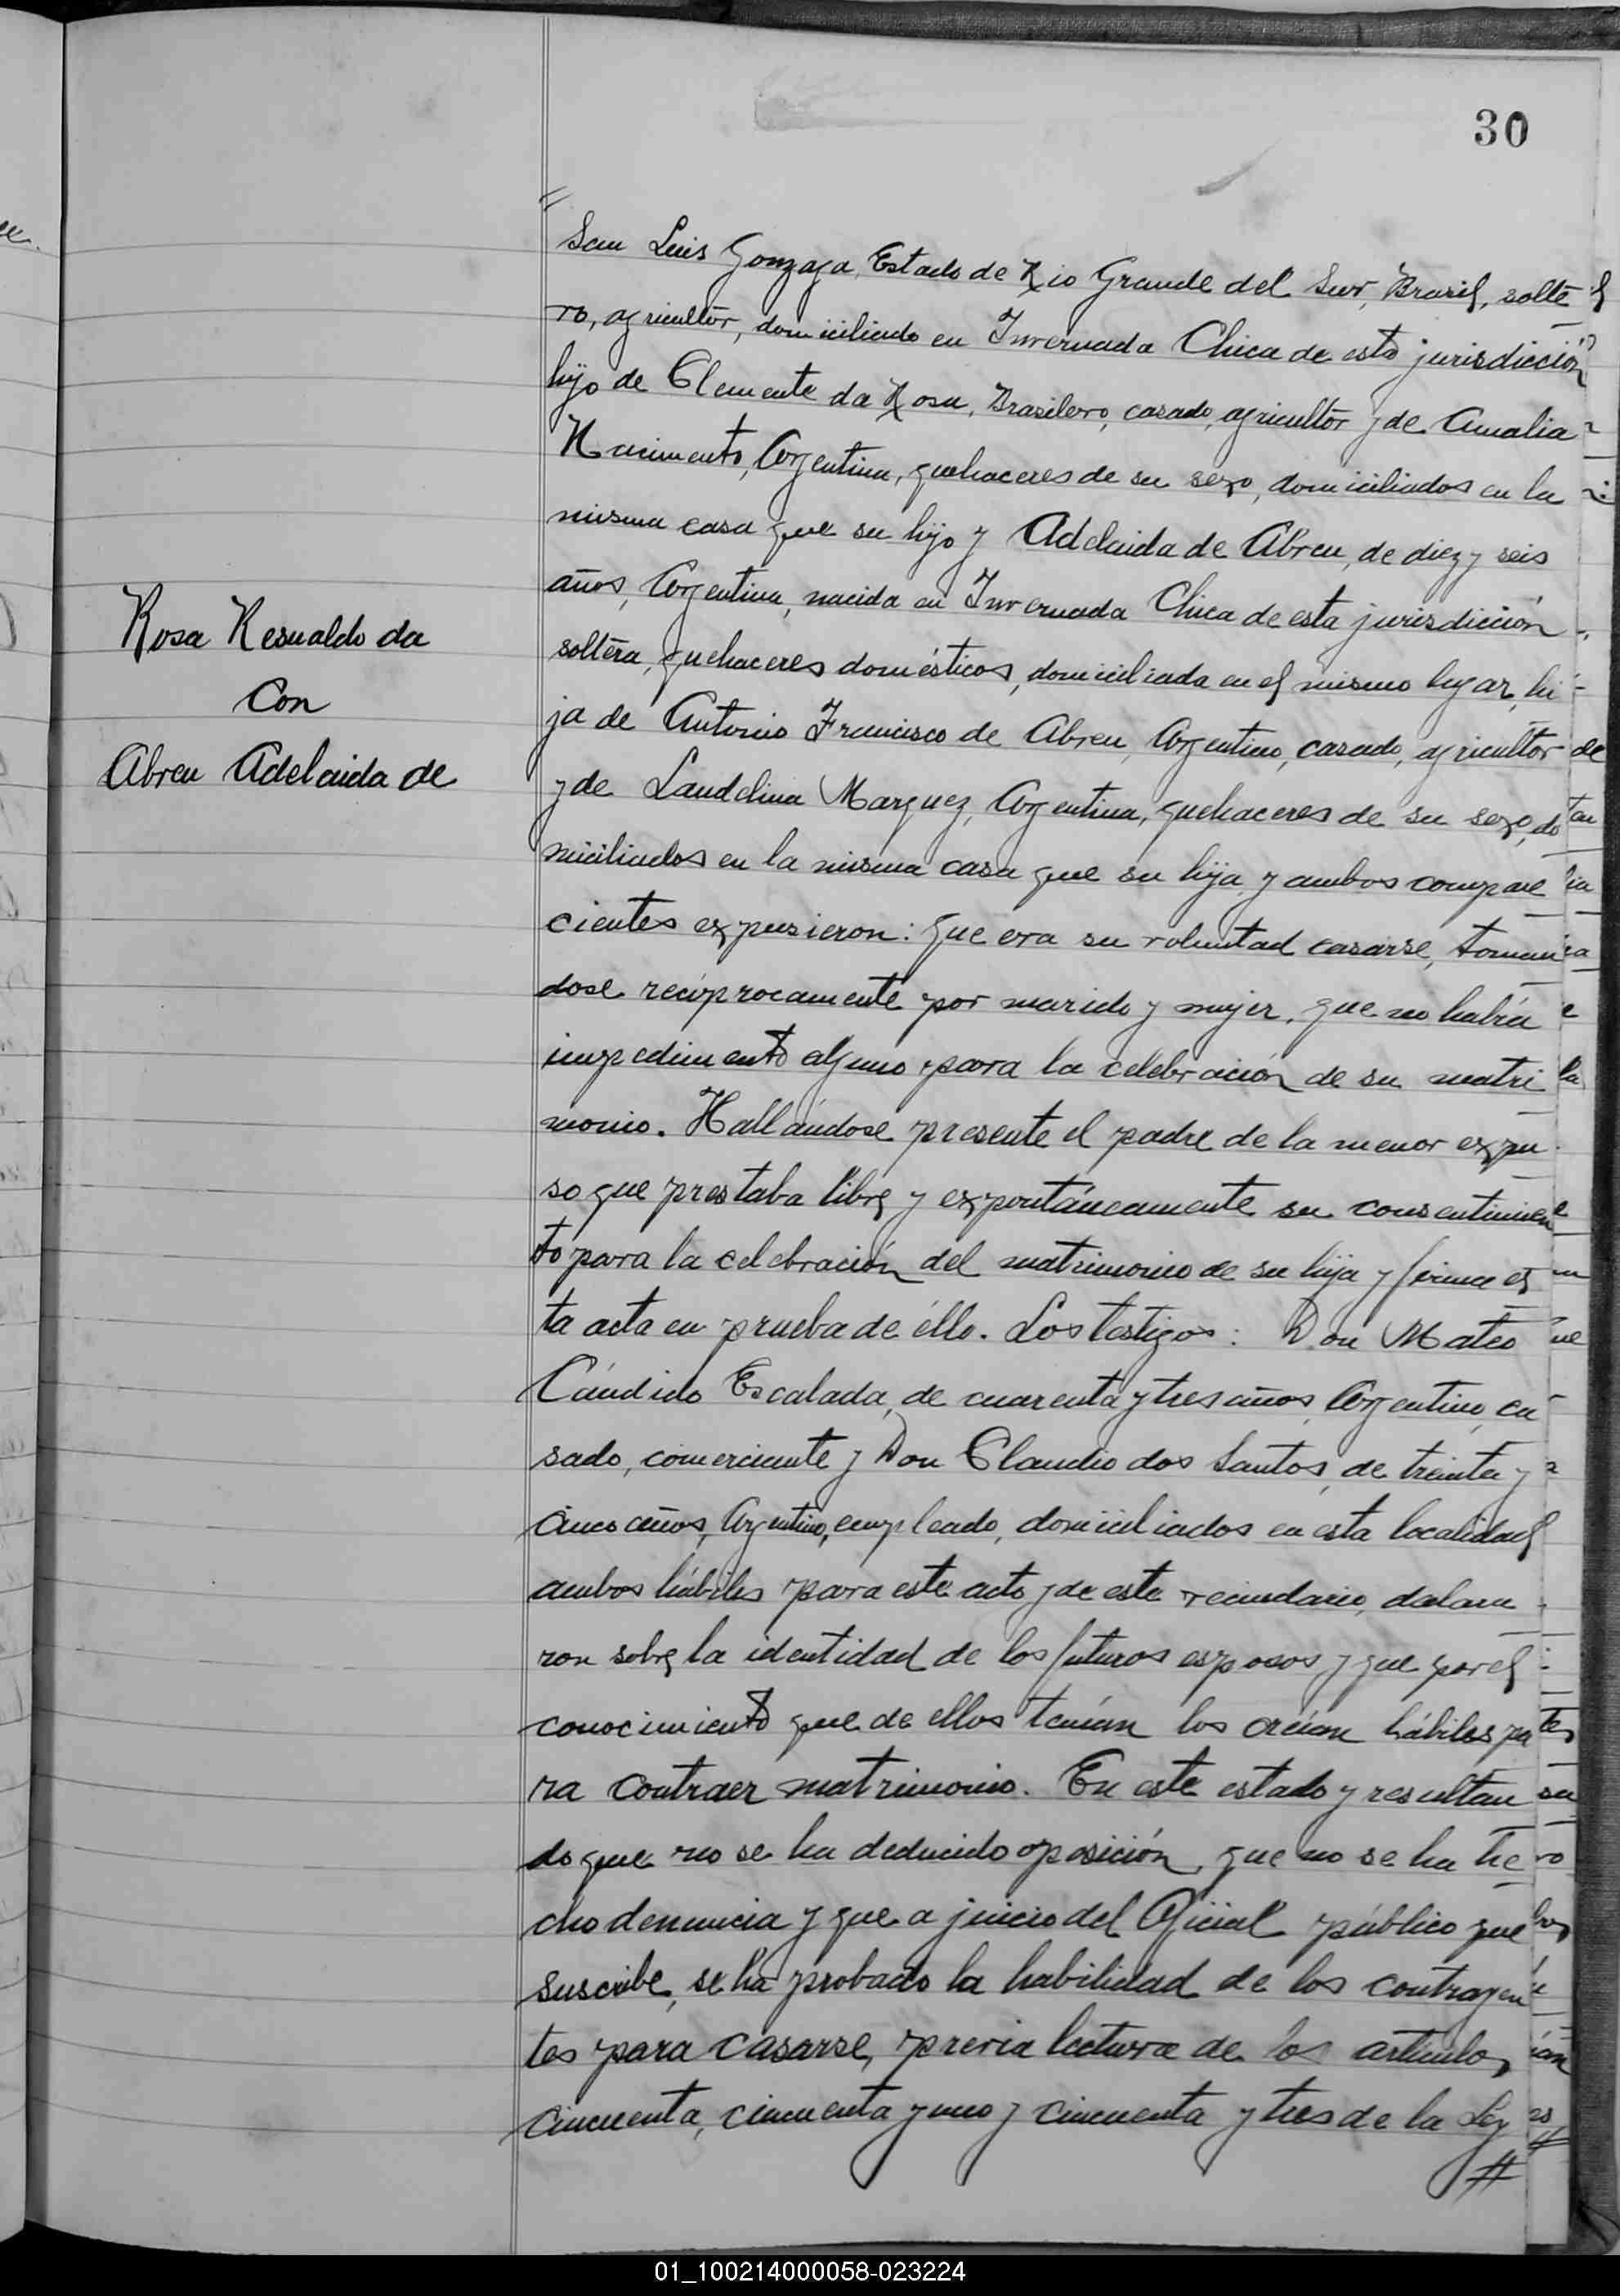 30
San Luis Gonzaga, Estado de Rio Grande del Sur, Brasil, solte
ro, agricultor, domiciliado en Invernada Chica de esta jurisdicción
hijo de Clemente da Rosa, Brasilero, casado, agricultor y de Amalia
Nacimento, Argentina, quehaceres de su sexo, domiciliados en la
misma casa que su hijo y Adelaida de Abreu, de diez y seis
años, Argentina, nacida en Invernada Chica de esta jurisdicción
soltera, quehaceres domésticos, domiciliada en el mismo lugar, hi
ja de Antonio Francisco de Abreu, Argentino, casado, agricultor
y de Laudelina Marquez, Argentina, quehaceres de su sexo, do
miciliados en la misma casa que su hija y ambos compare
cientes expusieron: que era su voluntad casarse, toman
dose recíprocamente por marido y mujer, que no había
impedimento alguno para la celebración de su matri
monio. Hallándose presente el padre de la menor expu
so que prestaba libre y expontáneamente su consentimien
to para la celebración del matrimonio de su hija y firma es
ta acta en prueba de éllo. Los testigos: Don Mateo
Cándido Escalada, de cuarenta y tres años, Argentino, ca
sado, comerciante y Don Claudio dos Santos, de treinta y
cinco años, Argentino, empleado, domiciliados en esta localidad
ambos hábiles para este acto y de este vecindario, declara
ron sobre la identidad de los futuros esposos y que por el
conocimiento que de ellos tenían los creían hábiles pa
ra contraer matrimonio. En este estado y resultan
do que no se ha deducido oposición, que no se ha he
cho denuncia y que a juicio del Oficial público que
suscribe, se ha probado la habilidad de los contrayen
tes para casarse, previa lectura de los artículos
cincuenta, cincuenta y uno y cincuenta y tres de la Ley
#
Rosa Resualdo da
con
Abreu Adelaida de
01_100214000058-023224